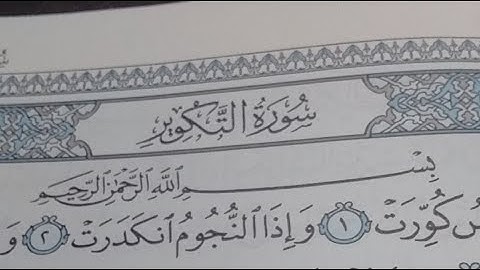 سُورَةُ التَّكْوِيرِ
بِسْمِ اللَّهِ الرَّحْمَٰنِ الرَّحِيمِ
كُوِّرَتْ ١ وَإِذَا النُّجُومُ انكَدَرَتْ ٢ وَ